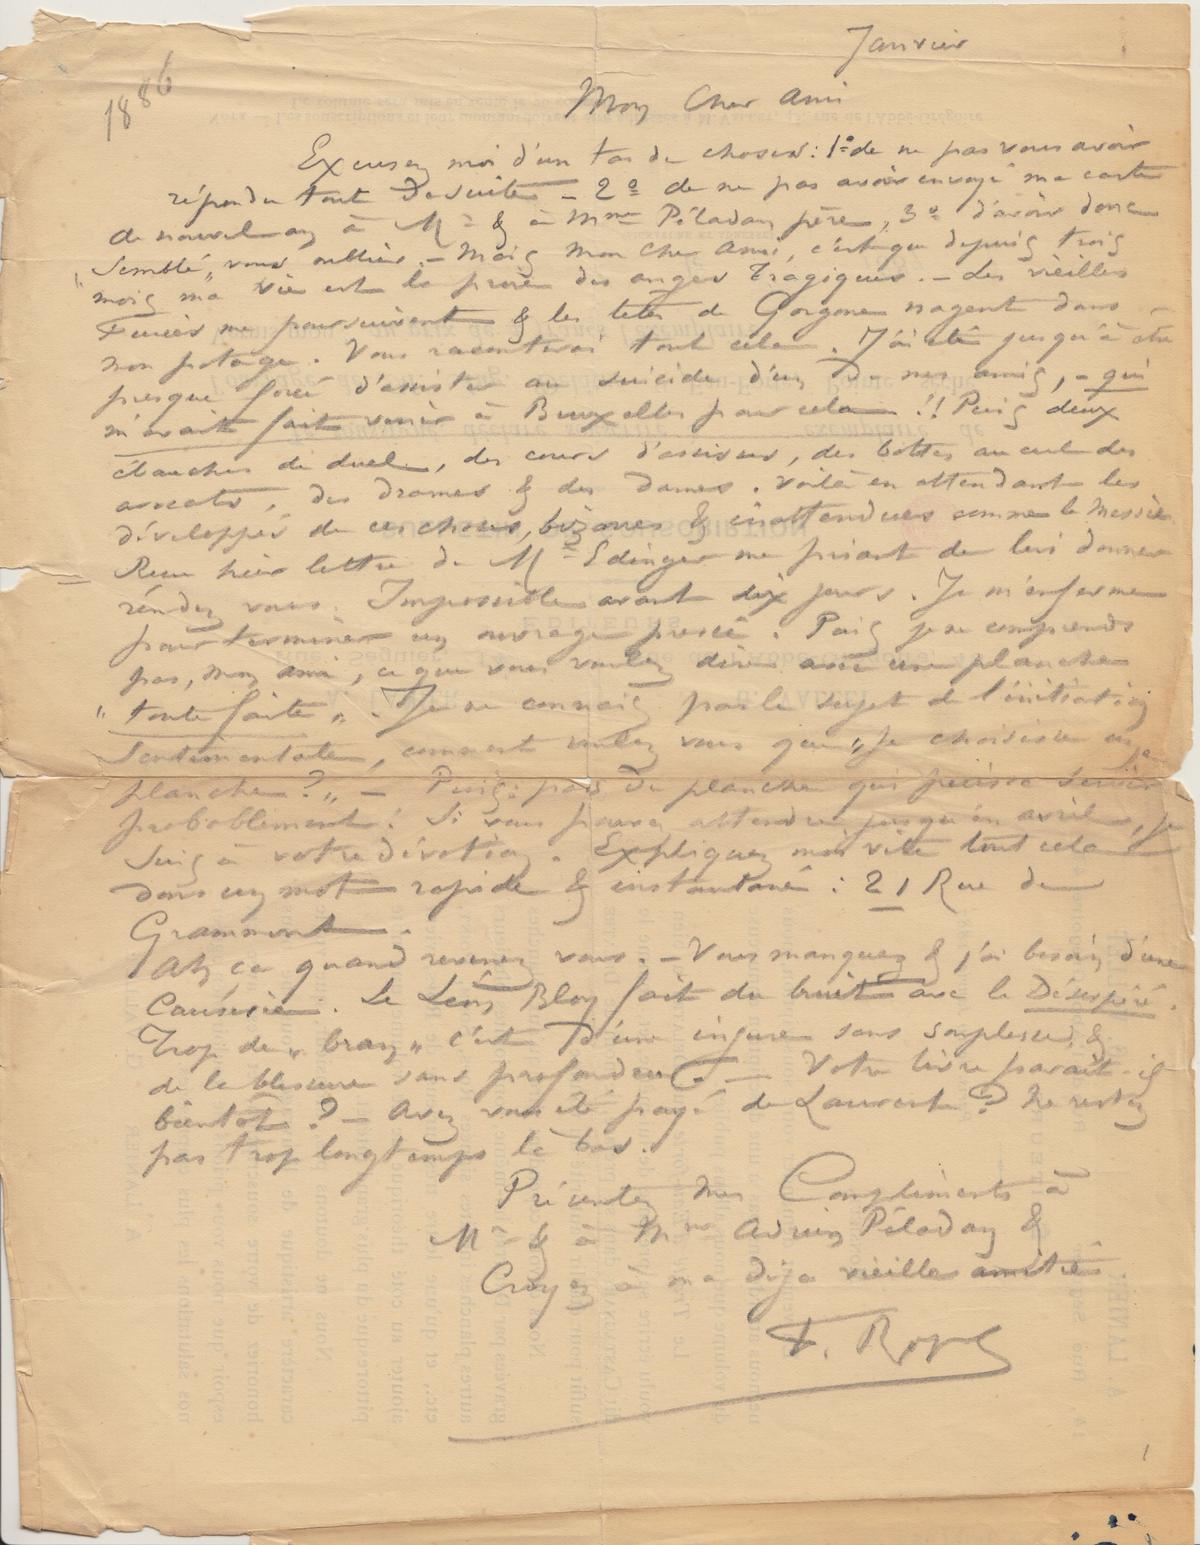 Janvier
1886
Mon Cher Ami
Excusez moi d'un tas de choses : 1° de ne pas vous avoir
répondu tout de suite – 2° de ne pas avoir envoyé ma carte
de nouvel an à Mr & à Mme Péladan père, 3° d'avoir donc
"semblé" vous oublier. – Mais mon cher Ami, c'est que depuis trois
mois ma vie est la proie des anges tragiques. – Les vieilles
Furies me poursuivent & les têtes de Gorgone nagent dans
mon potage. Vous raconterai tout cela. J'ai été jusqu'à être
presque forcé d'assister au suicide d'un de mes amis, – qui
m'avait fait venir à Bruxelles pour cela !! Puis deux
ébauches de duel, des cours d'assises, des bottes au cul des
avocats, des drames & des dames. Voilà en attendant les
développés de ces choses, bizarres & inattendues comme le Messie.
Reçu hier lettre de Mr Edinger me priant de lui donner
rendez vous. Impossible avant dix jours. Je m'enferme
pour terminer un ouvrage pressé. Puis je ne comprends
pas, mon ami, ce que vous voulez dire avec une planche
"toute faite". Je ne connais pas le sujet de l'initiation
Sentimentale, comment voulez vous que "je choisisse une
planche ?" – Puis : pas de planche qui puisse servir
probablement ! Si vous pouvez attendre jusqu'en avril, je
suis à votre dévotion. Expliquez moi vite tout cela
dans un mot rapide & instantané : 21 Rue de
Grammont.
Ah ça quand revenez vous. – Vous manquez & j'ai besoin d'une
Causerie. Le Léon Bloy fait du bruit avec le Désespéré.
Trop de "bran" c'est d'une injure sans souplesse, &
de la blessure sans profondeur. – Votre livre parait-il
bientôt ? – Avez vous été payé de Laurent ? Ne restez
pas trop longtemps là bas.
Présentez mes Compliments à
Mr & à Mme Adrien Péladan &
Croyez à ma déjà vieille amitié
F. Rops